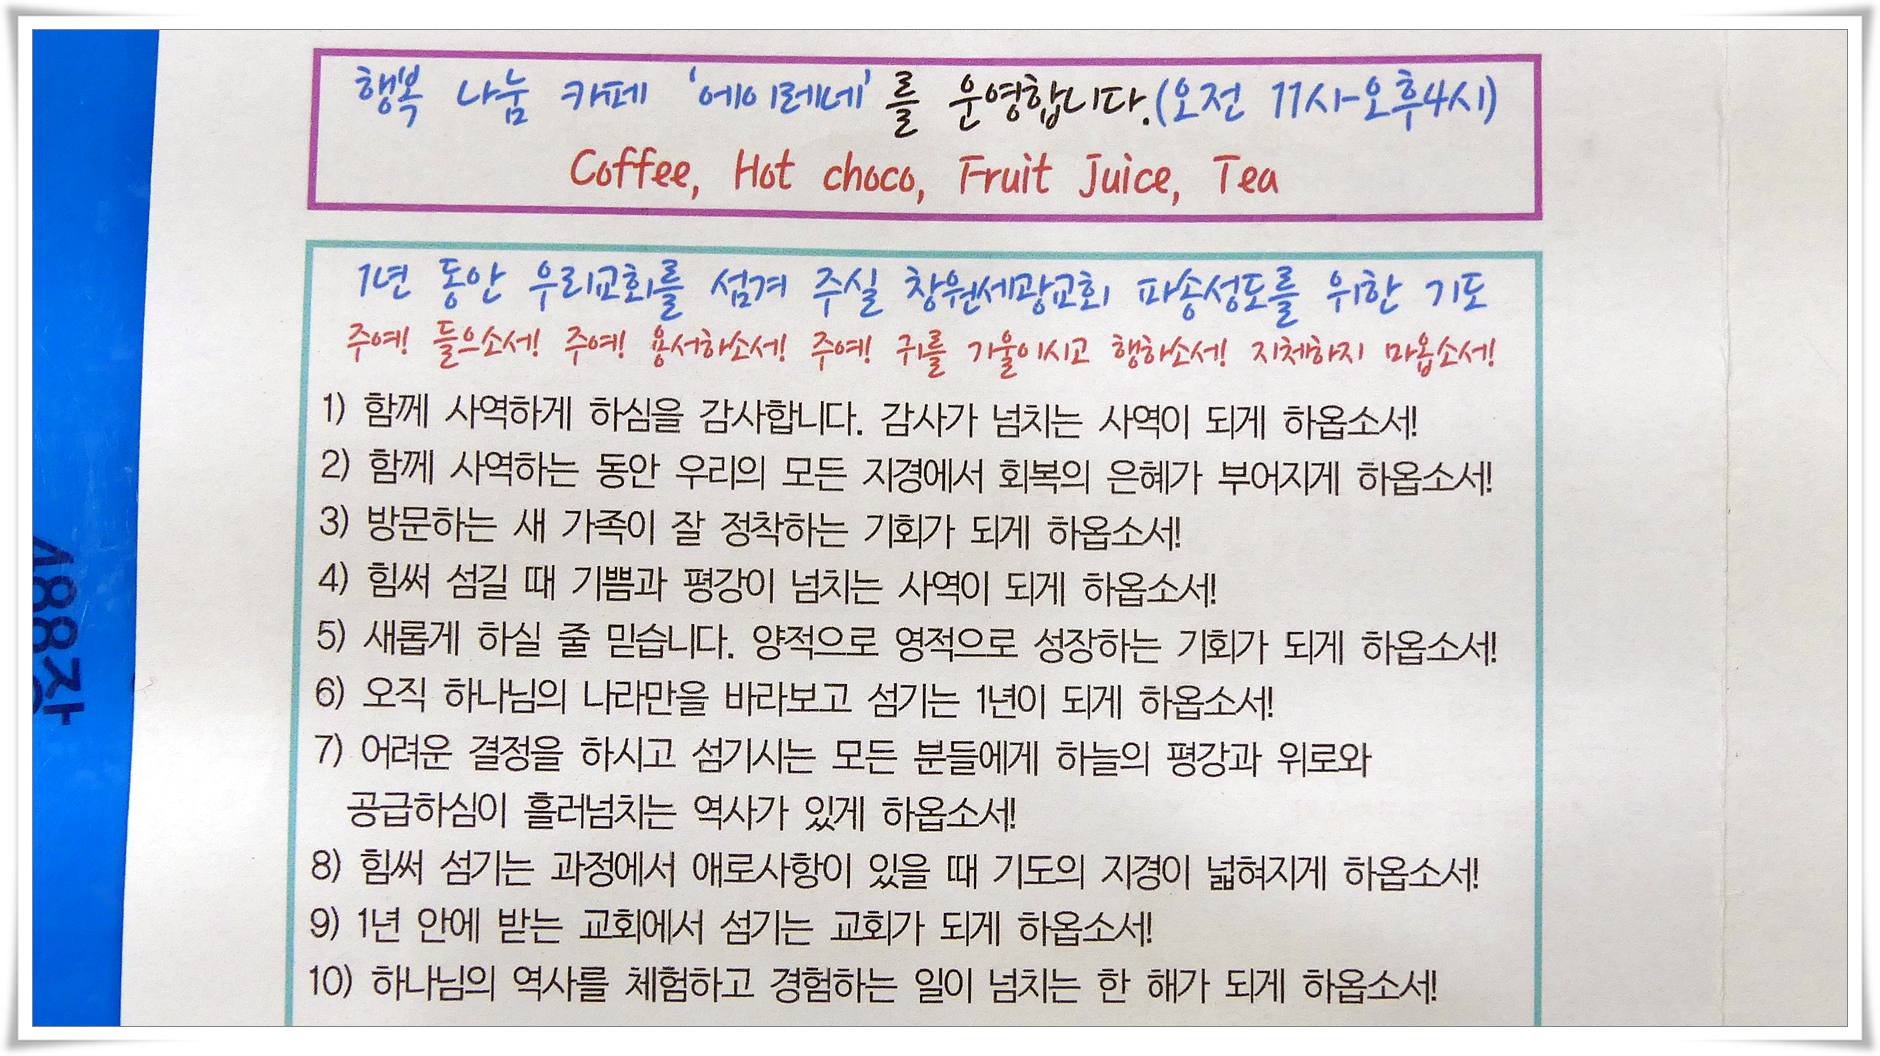 행복 나눔 카페 '에이레네'를 운영합니다.(오전 11시-오후4시)
Coffee, Hot choco, Fruit Juice, Tea
1년 동안 우리교회를 섬겨 주실 창원세광교회 파송성도를 위한 기도
주여! 들으소서! 주여! 용서하소서! 주여! 귀를 기울이시고 행하소서! 지체하지 마옵소서!
1) 함께 사역하게 하심을 감사합니다. 감사가 넘치는 사역이 되게 하옵소서!
2) 함께 사역하는 동안 우리의 모든 지경에서 회복의 은혜가 부어지게 하옵소서!
3) 방문하는 새 가족이 잘 정착하는 기회가 되게 하옵소서!
4) 힘써 섬길 때 기쁨과 평강이 넘치는 사역이 되게 하옵소서!
5) 새롭게 하실 줄 믿습니다. 양적으로 영적으로 성장하는 기회가 되게 하옵소서!
6) 오직 하나님의 나라만을 바라보고 섬기는 1년이 되게 하옵소서!
7) 어려운 결정을 하시고 섬기시는 모든 분들에게 하늘의 평강과 위로와
공급하심이 흘러넘치는 역사가 있게 하옵소서!
8) 힘써 섬기는 과정에서 애로사항이 있을 때 기도의 지경이 넓혀지게 하옵소서!
9) 1년 안에 받는 교회에서 섬기는 교회가 되게 하옵소서!
10) 하나님의 역사를 체험하고 경험하는 일이 넘치는 한 해가 되게 하옵소서!
488장